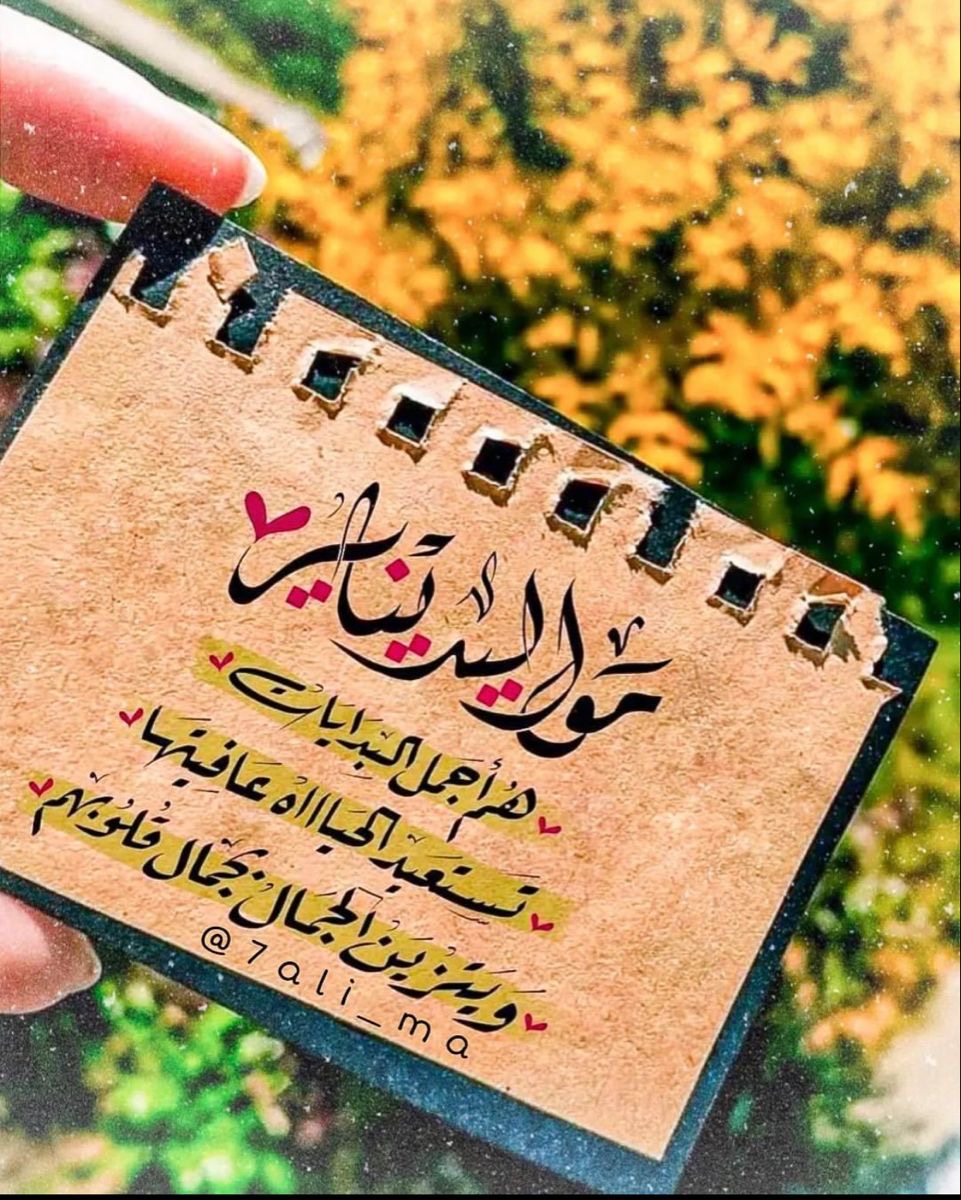 مواليد يناير
هُم أجمل البدايات
تستعيد الحياااه عافيتها
ويتزين الجمال بجمال قلوبهم
@7ali_ma